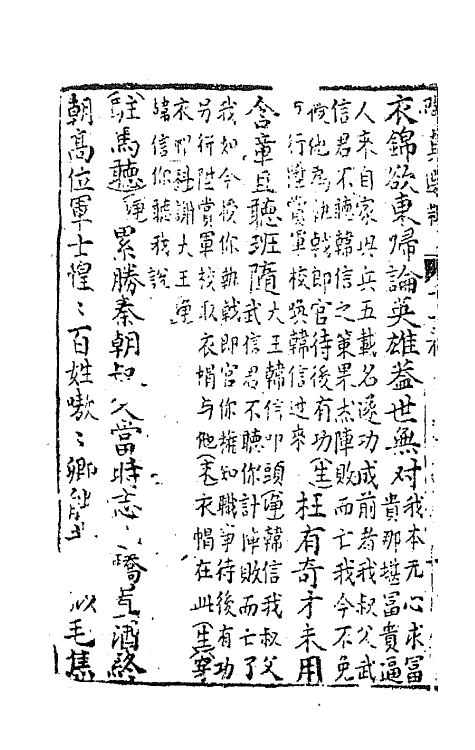 衣錦欲東歸論英雄蓋世無对我本无心求冨
貴那堪冨貴逼
人来自家起兵五載名遂功成前者我叔父武
信君不聽韓信之策果杰陣敗而亡我今不免
授他為执戟郎官待後有功
行陞賞軍校喚韓信过来(生)枉有奇才未用
含章且聽班隋大王韓信叩頭(淨)韓信我叔父
武信君不聽你計陣敗而亡了
我如今授你執戟郎官你擁知職事待後有功
另行陞賞軍校取衣帽与他(末)衣帽在此(生)穿
衣卯科謝大王(淨)
韓信你聽我說
駐馬聽(淨)累勝秦朝叔父當時志 驕貞酒終
朝高位軍士惶〻百姓嗷〻卿 以毛集